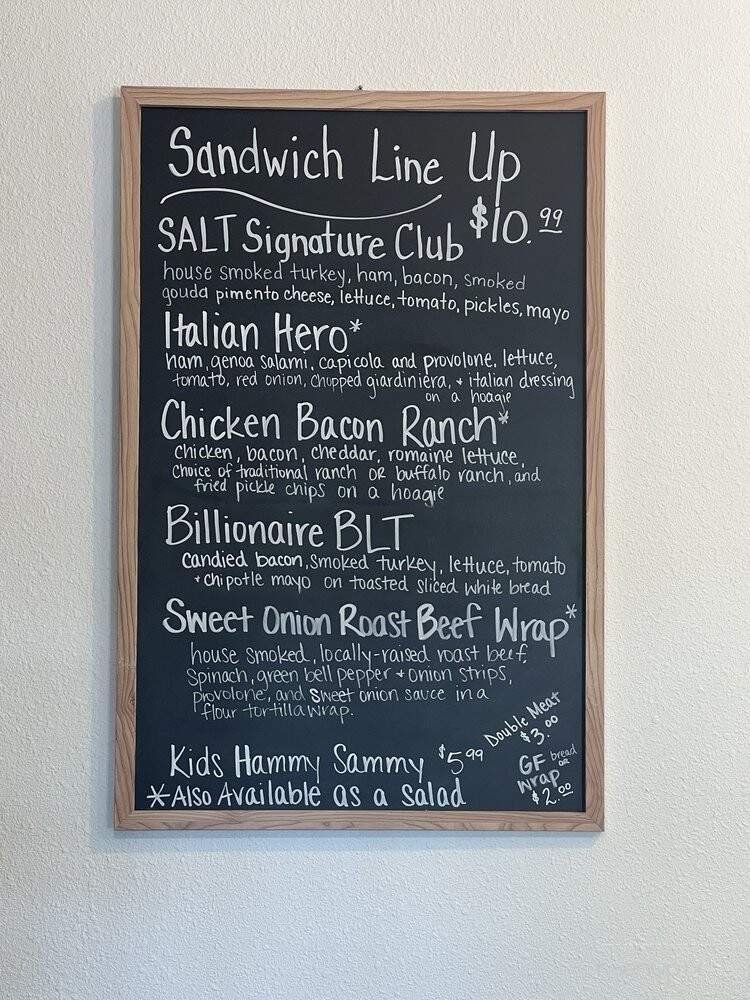 Sandwich Line Up
$10.99
SALT Signature Club
house smoked turkey, ham, bacon, smoked
gouda pimento cheese, lettuce, tomato, pickles, mayo
Italian Hero*
ham, genoa salami, capicola and provolone, lettuce,
tomato, red onion, chopped giardiniera, + italian dressing
on a hoagie
Chicken Bacon Ranch*
chicken, bacon, cheddar, romaine lettuce,
choice of traditional ranch OR buffalo ranch, and
fried pickle chips on a hoagie
Billionaire BLT
candied bacon, smoked turkey, lettuce, tomato
+ chipotle mayo on toasted sliced white bread
Sweet Onion Roast Beef Wrap*
house smoked, locally-raised roast beef,
spinach, green bell pepper + onion strips,
provolone, and sweet onion sauce in a
flour tortilla wrap.
Double Meat
$3.00
GF bread
OR
wrap
$2.00
Kids Hammy Sammy $5.99
*Also Available as a Salad